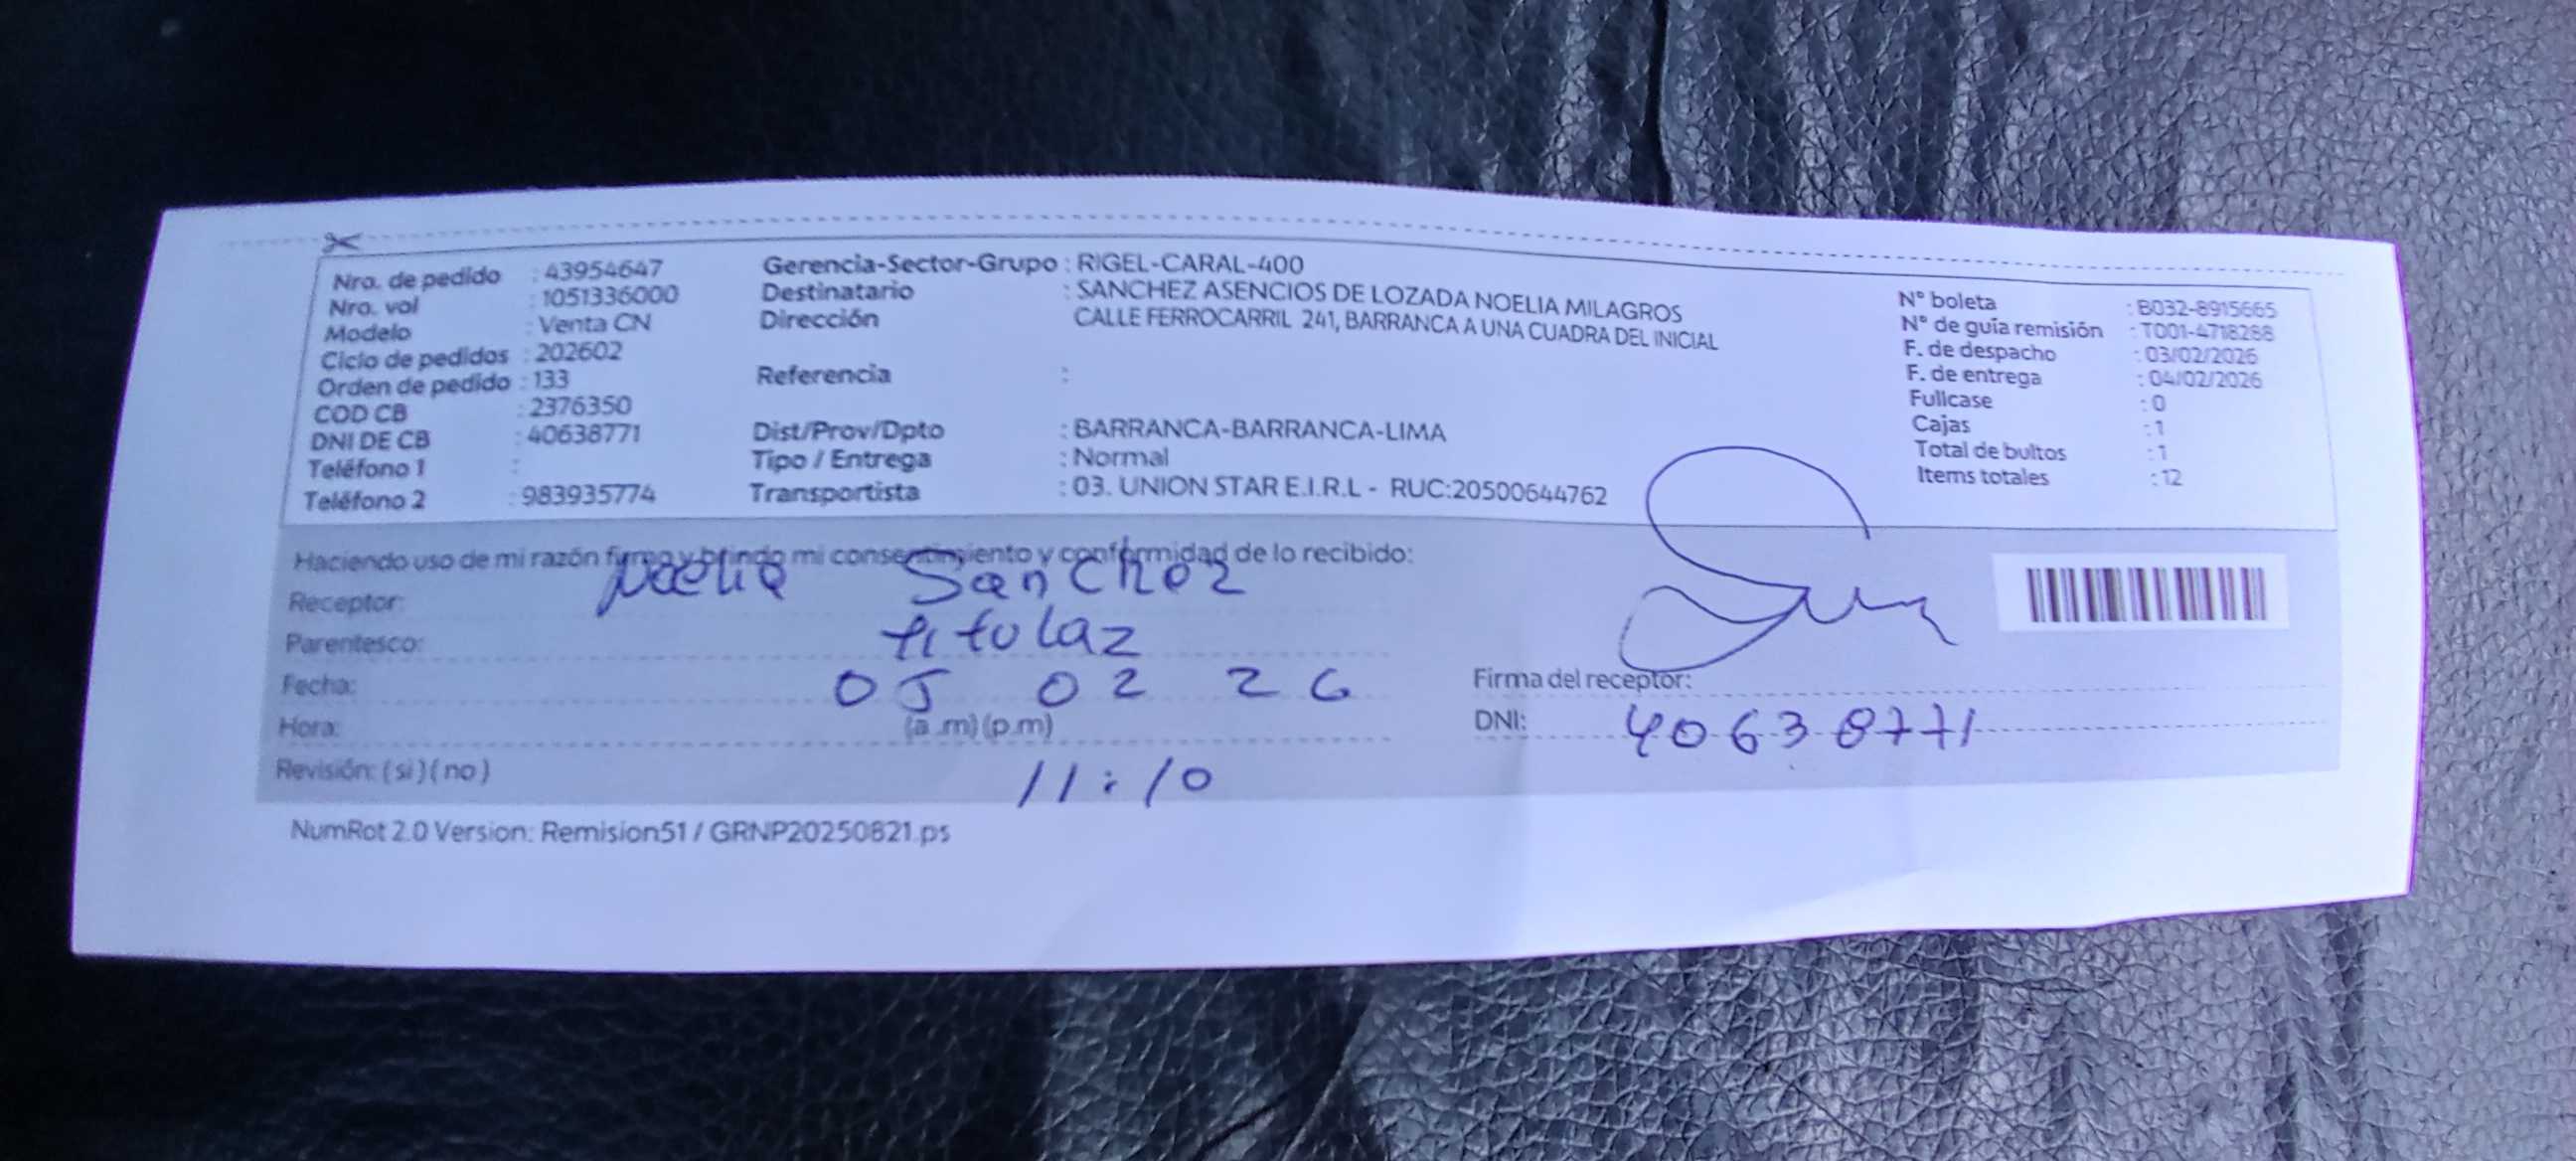 Nro. de pedido : 43954647
Nro. vol : 1051336000
Modelo : Venta CN
Ciclo de pedidos : 202602
Orden de pedido : 133
COD CB : 2376350
DNI DE CB : 40638771
Teléfono 1 :
Teléfono 2 : 983935774
Gerencia-Sector-Grupo : RIGEL-CARAL-400
Destinatario : SANCHEZ ASENCIOS DE LOZADA NOELIA MILAGROS
Dirección CALLE FERROCARRIL 241, BARRANCA A UNA CUADRA DEL INICIAL
Referencia :
Dist/Prov/Dpto : BARRANCA-BARRANCA-LIMA
Tipo / Entrega : Normal
Transportista : 03. UNION STAR E.I.R.L - RUC:20500644762
N° boleta : B032-8915665
N° de guía remisión : T001-4718288
F. de despacho : 03/02/2026
F. de entrega : 04/02/2026
Fullcase : 0
Cajas : 1
Total de bultos : 1
Items totales : 12
Haciendo uso de mi razón firmo y brindo mi consentimiento y conformidad de lo recibido:
Receptor: Noelia Sanchez
Parentesco: titular
Fecha: 05 02 26
Hora: (a .m) (p.m)
11:10
Revisión: ( si ) ( no )
Firma del receptor:
DNI: 40638771
NumRot 2.0 Version: Remision51 / GRNP20250821.ps